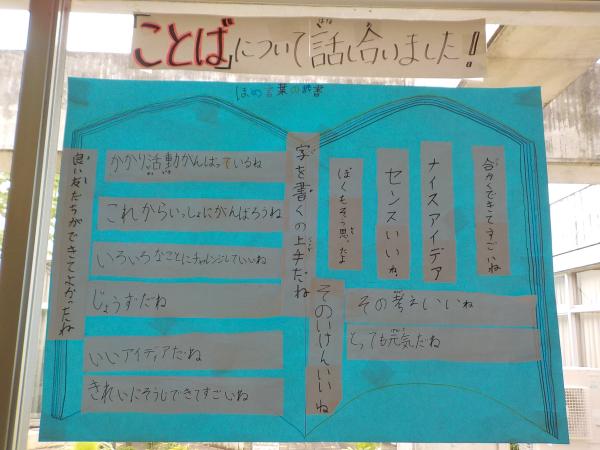 「ことば」について話し合いました!
ほめ言葉の辞書
良い友だちができてよかったね
かかり活動がんばっているね
これからいっしょにがんばろうね
いろいろなことにチャレンジしていいね
じょうずだね
いいアイディアだね
きれいにそうじできてすごいね
字を書くの上手だね
そのいけんいいね
ぼくもそう思ったよ
センスいいね
ナイスアイデア
できてすごいね
その考えいいね
とっても元気だね